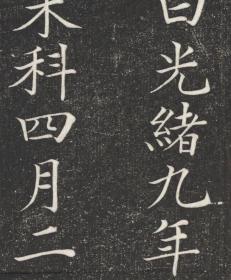 光緒九年
科四月二